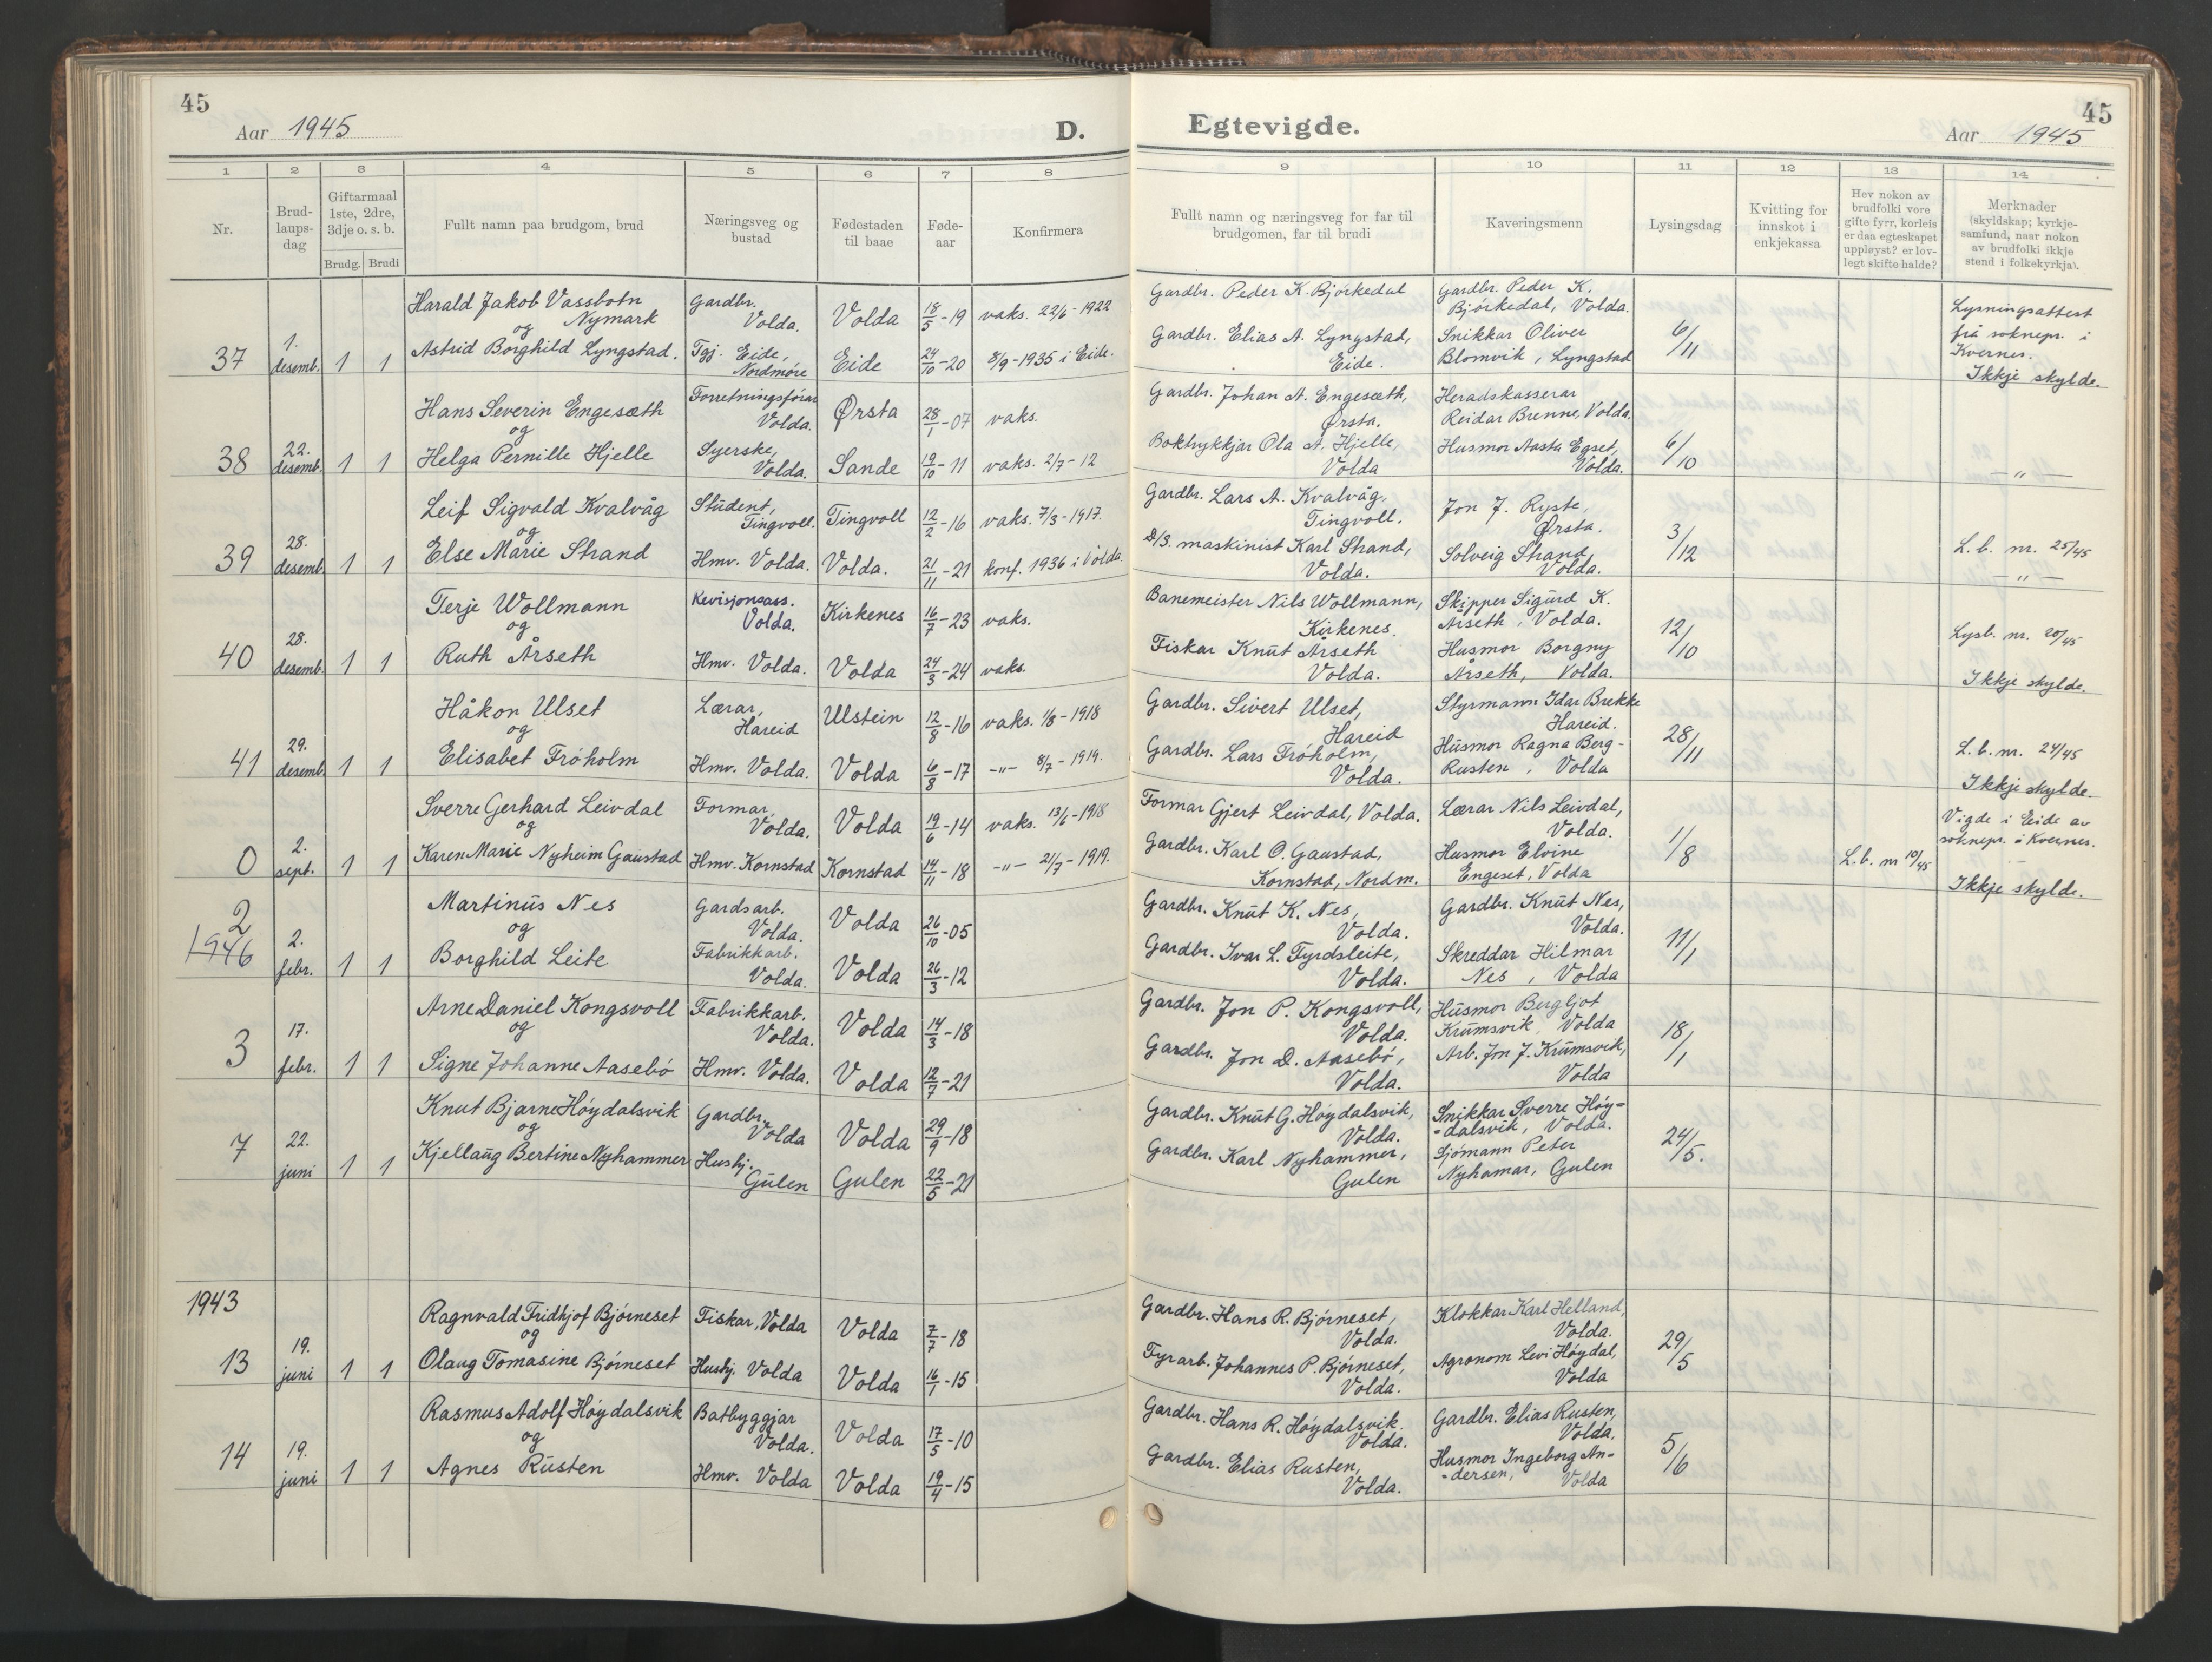 45
Aar 1945
D.
1 2 3 4 5 6 7 8
Nr.
Brud-
laups-
dag
Giftarmaal
1ste, 2dre,
3dje o. s. b.
Brudg. Brudi
Fullt namn paa brudgom, brud
Næringsveg og
bustad
Fødestaden
til baae
Føde-
aar
Konfirmera
Harald Jakob Vassbotn Gardbr.
og Nymark Volda. Volda 18/5-19 vaks. 22/6-1922
37 1. desemb. 1 1 Astrid Borghild Lyngstad. Tgj. Eide, Eide 24/10-20 8/9-1935 i Eide.
Nordmøre
Hans Severin Engesæth Forretningsförar
og Volda. Ørsta 28/1-07 vaks.
38 22. desemb. 1 1 Helga Pernille Hjelle Syerske,
Volda. Sande 19/10-11 vaks. 2/7-12
Leif Sigvald Kvalvåg Student,
og Tingvoll. Tingvoll 12/2-16 vaks. 7/3-1917.
39 28. desemb. 1 1 Else Marie Strand Hmv. Volda. Volda. 21/11-21 konf. 1936 i Volda.
Terje Wollmann Revisjonsass.
og Volda. Kirkenes 16/7-23 vaks.
40 28. desemb. 1 1 Ruth Årseth Hmv. Volda. Volda 24/3-24 vaks.
Håkon Ulset Lærar,
og Hareid Ulstein 12/8-16 vaks. 1/8-1918
41 29. desemb. 1 1 Elisabet Fröholm Hmv. Volda. Volda 6/8-17 -"- 8/7-1919.
Sverre Gerhard Leivdal Formar,
og Volda. Volda 19/6-14 vaks. 13/6-1918
0 2. sept. 1 1 Karen Marie Nyheim Gaustad Hmv. Kornstad Kornstad 14/11-18 -"- 21/7-1919.
2 Martinus Nes Gardsarb.
og Volda. Volda 26/10-05
1946 2. febr. 1 1 Borghild Leite Fabrikkarb.
Volda. Volda 26/3-12
Arne Daniel Kongsvoll Fabrikkarb.
og Volda. Volda 14/3-18
3 17. febr. 1 1 Signe Johanne Aasebö Hmv. Volda. Volda 12/7-21
Knut Bjarne Höydalsvik Gardbr.
og Volda Volda 29/9-18
7 22. juni 1 1 Kjellaug Bertine Nyhammer Hushj.
Gulen Gulen 22/5-21
1943
Ragnvald Fridtjof Bjørneset Fiskar, Volda Volda 7/7-18
og
13 19. juni 1 1 Olaug Tomasine Bjørneset Hushj. Volda Volda 16/1-15
Rasmus Adolf Höydalsvik Batbyggjar
og Volda. Volda 17/5-10
14 19. juni 1 1 Agnes Rusten Hmv. Volda Volda 19/4-15
Egtevigde.
45
Aar 1945
9 10 11 12 13 14
Fullt namn og næringsveg for far til
brudgomen, far til brudi
Kaveringsmenn
Lysingsdag
Kvitting for
innskot i
enkjekassa
Hev nokon av
brudfolki vore
gifte fyrr, korleis
er daa egteskapet
uppløyst? er lov-
legt skifte halde?
Merknader
(skyldskap; kyrkje-
samfund, naar nokon
av brudfolki ikkje
stend i folkekyrkja).
Gardbr. Peder K. Bjørkedal Gardbr. Peder K.
Bjørkedal, Volda. Lysningsattest
Gardbr. Elias A. Lyngstad, Snikkar Oliver 6/11 frå soknepr. i
Eide. Blomvik, Lyngstad Kvernes.
Ikkje skylde.
Gardbr. Johan A. Engesæth, Heradskasserar
Ørsta. Reidar Brenne, Volda.
Boktrykkjar Ola A. Hjelle, Husmor Aasta Egset, 6/10
Volda Volda. — " —
Gardbr. Lars A. Kvalvåg, Jon J. Ryste,
Tingvoll. Ørsta. 3/12
D/S. maskinist Karl Strand, Solveig Strand, L. b. nr. 25/45
Volda. Volda. — " —
Banemeister Nils Wollmann, Skipper Sigurd K.
Kirkenes. Årseth, Volda. 12/10 Lysb. nr. 20/45
Fiskar Knut Årseth Husmor Borgny
Volda. Årseth, Volda. Ikkje skylde.
Gardbr. Sivert Ulset, Styrmann Idar Brekke
Hareid Hareid. 28/11
Gardbr. Lars Fröholm, Husmor Ragna Berg- L. b. nr. 24/45
Volda. Rusten, Volda Ikkje skylde.
Formar Gjert Leivdal, Volda. Lærar Nils Leivdal, Vigde i Eide av
Volda. 1/8 soknepr. i Kvernes.
Gardbr. Karl O. Gaustad, Husmor Elvine L. b. nr 10/45
Kornstad, Nordm. Engeset, Volda Ikkje skylde.
Gardbr. Knut K. Nes, Gardbr. Knut Nes,
Volda. Volda. 11/1
Gardbr. Ivar L. Fyrdsleite, Skreddar Hilmar
Volda. Nes, Volda
Gardbr. Jon P. Kongsvoll, Husmor Bergljot
Volda. Krumsvik, Volda 18/1
Gardbr. Jon D. Aasebö, Arb. Jon J. Krumsvik,
Volda. Volda
Gardbr. Knut G. Höydalsvik, Snikkar Sverre Höy-
Volda. -dalsvik, Volda. 24/5.
Gardbr. Karl Nyhammer, Sjömann Peter
Gulen Nyhamar, Gulen
Gardbr. Hans R. Bjørneset, Klokkar Karl Helland,
Volda. Volda. 29/5
Fyrarb. Johannes P. Bjørneset, Agronom Levi Höydal,
Volda. Volda
Gardbr. Hans R. Höydalsvik. Gardbr. Elias Rusten,
Volda. Volda. 5/6
Gardbr. Elias Rusten, Husmor Ingeborg An-
Volda. -dersen, Volda